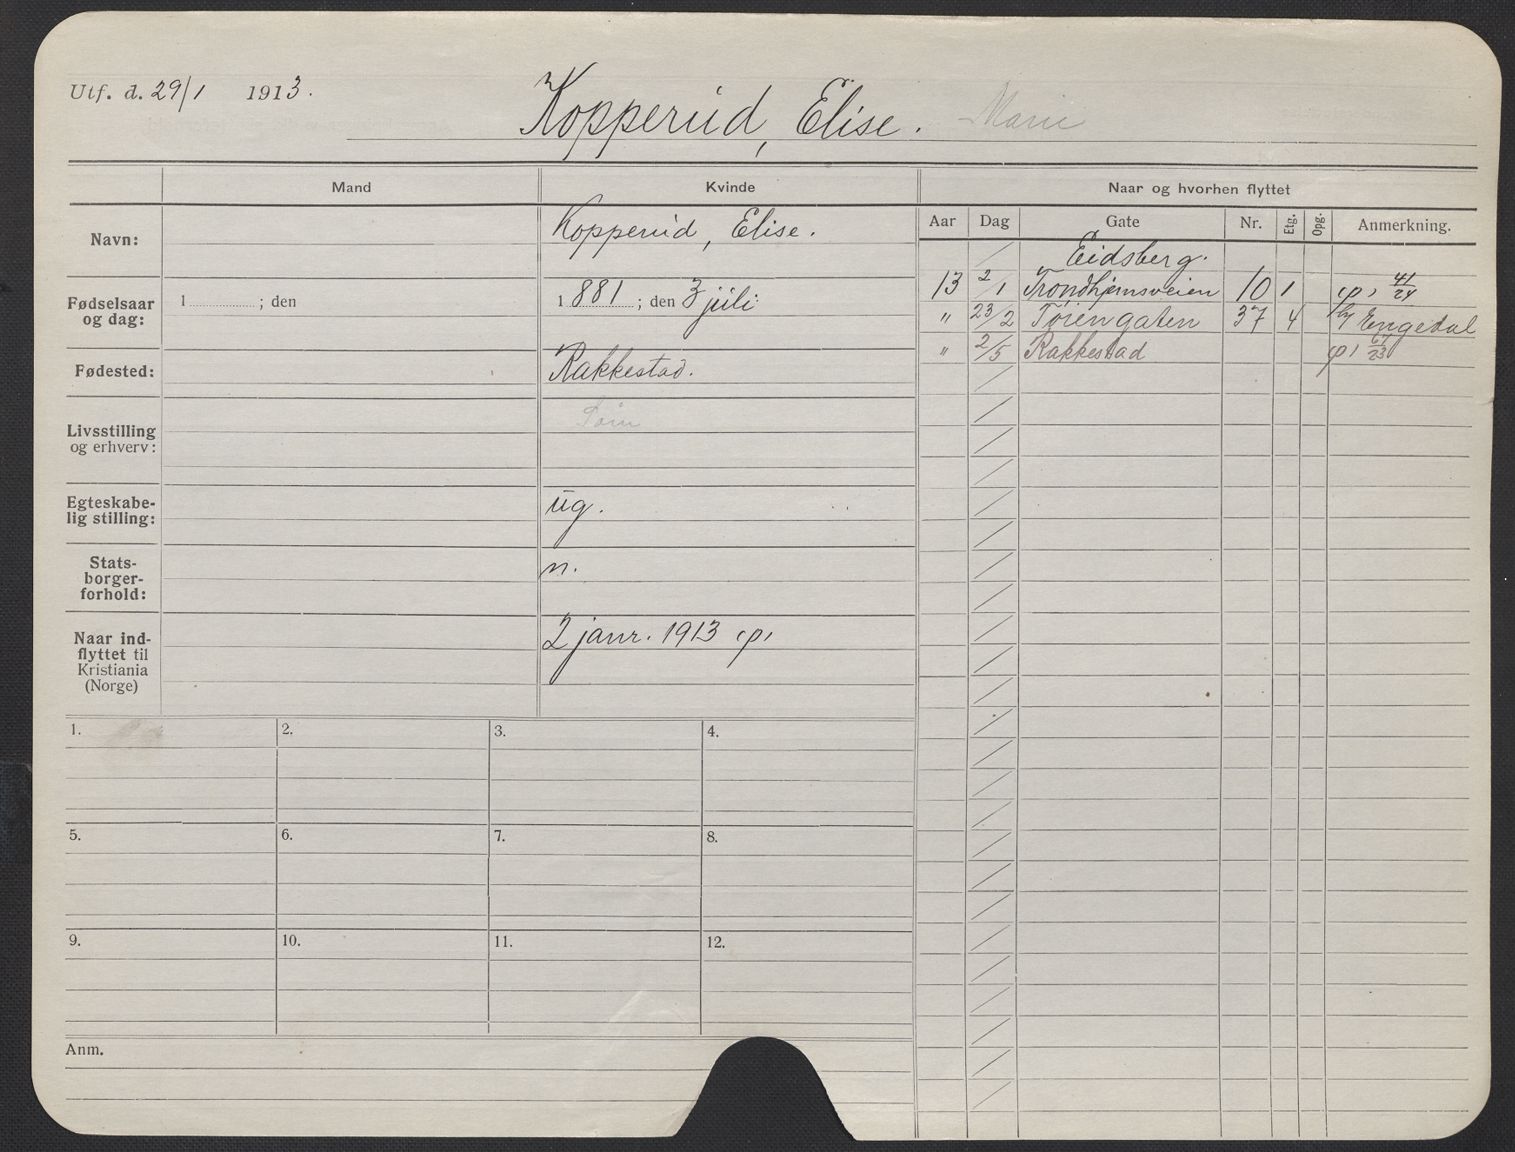 Utf. d. 29/1 1913.
Kopperud, Elise. Marie
Mand
Kvinde
Naar og hvorhen flyttet
Aar Dag Gate Nr. Etg. Opg. Anmerkning.
Navn:
Kopperud, Elise.
Fødselsaar
og dag:
1 ; den
1881 ; den 3 juli
Fødested:
Rakkestad.
Livsstilling
og erhverv:
Egteskabe-
lig stilling:
ug.
Stats-
borger-
forhold:
n.
Naar ind-
flyttet til
Kristiania
(Norge)
2 janr. 1913 (p)
Eidsberg.
13 2/1 Trondhjemsveien 10 1 (p) 41/24
" 23/2 Tøiengaten 37 4 h/ Engedal
" 2/5 Rakkestad (p)
1. 2. 3. 4.
5. 6. 7. 8.
9. 10. 11. 12.
Anm.